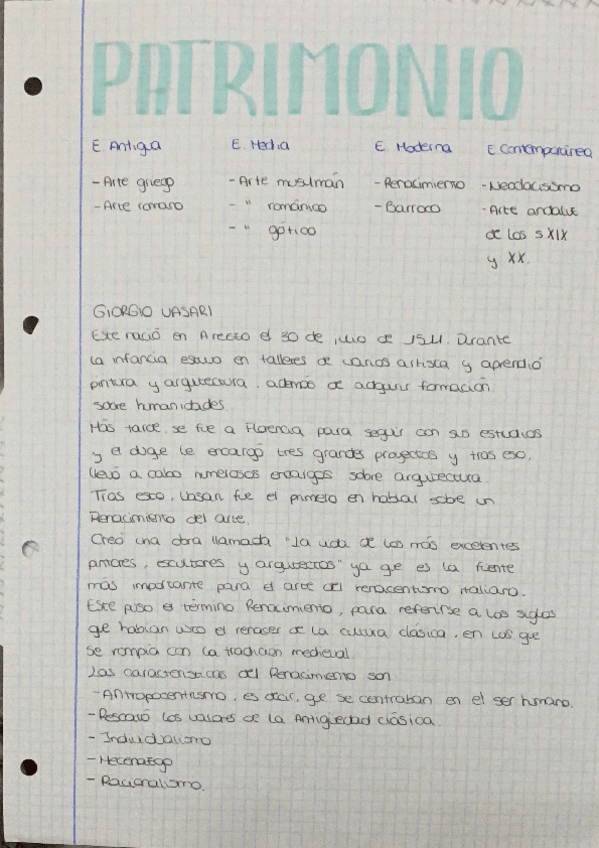 PATRIMONIO
E Antigua E. Media E. Moderna E Contemporánea
-Arte griego -Arte musulmán -Renacimiento -Neoclacisismo
-Arte romano - " románico -Barroco -Arte andaluz
- " gótico de los s XIX
y XX.
GIORGIO VASARI
Este nació en Arezzo el 30 de julio de 1511. Durante
la infancia estuvo en talleres de varios artista y aprendió
pintura y arquitectura, además de adquirir formación
sobre humanidades.
Más tarde, se fue a Florencia para seguir con sus estudios
y el duqe le encargó tres grandes proyectos y tras eso,
llevó a cabo numerosos encargos sobre arquitectura.
Tras esto, Vasari fue el primero en hablar sobre un
Renacimiento del arte.
Creó una obra llamada "La vida de los más excelentes
pintores, escultores y arquitectos" ya qe es la fuente
más importante para el arte del renacentismo italiano.
Este puso el término Renacimiento, para referirse a los siglos
qe habían visto el renacer de la cultura clásica, en los qe
se rompía con la tradicion medieval.
Las características del Renacimiento son
-Antropocentrismo, es decir, qe se centraban en el ser humano.
-Rescató los valores de la Antigüedad clásica.
-Individualismo
-Mecenazgo
-Racionalismo.